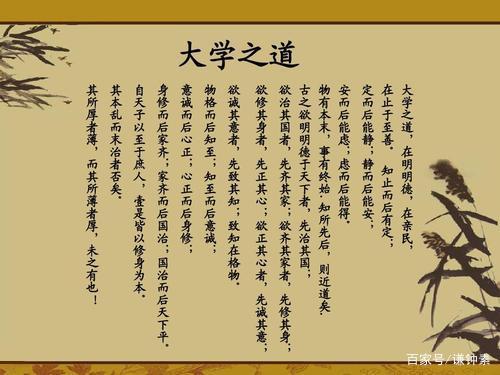 大学之道
大学之道，在明明德，在亲民，
在止于至善。 知止而后有定；
定而后能静；静而后能安；
安而后能虑；虑而后能得。
物有本末，事有终始·知所先后，则近道矣·
古之欲明明德于天下者，先治其国；
欲治其国者，先齐其家；欲齐其家者，先修其身；
欲修其身者，先正其心；欲正其心者，先诚其意；
欲诚其意者，先致其知；致知在格物。
物格而后知至；知至而后意诚；
意诚而后心正；心正而后身修；
身修而后家齐；家齐而后国治；国治而后天下平。
自天子以至于庶人，壹是皆以修身为本。
其本乱而末治者否矣。
其所厚者薄，而其所薄者厚，未之有也！
百家号/谦钟素